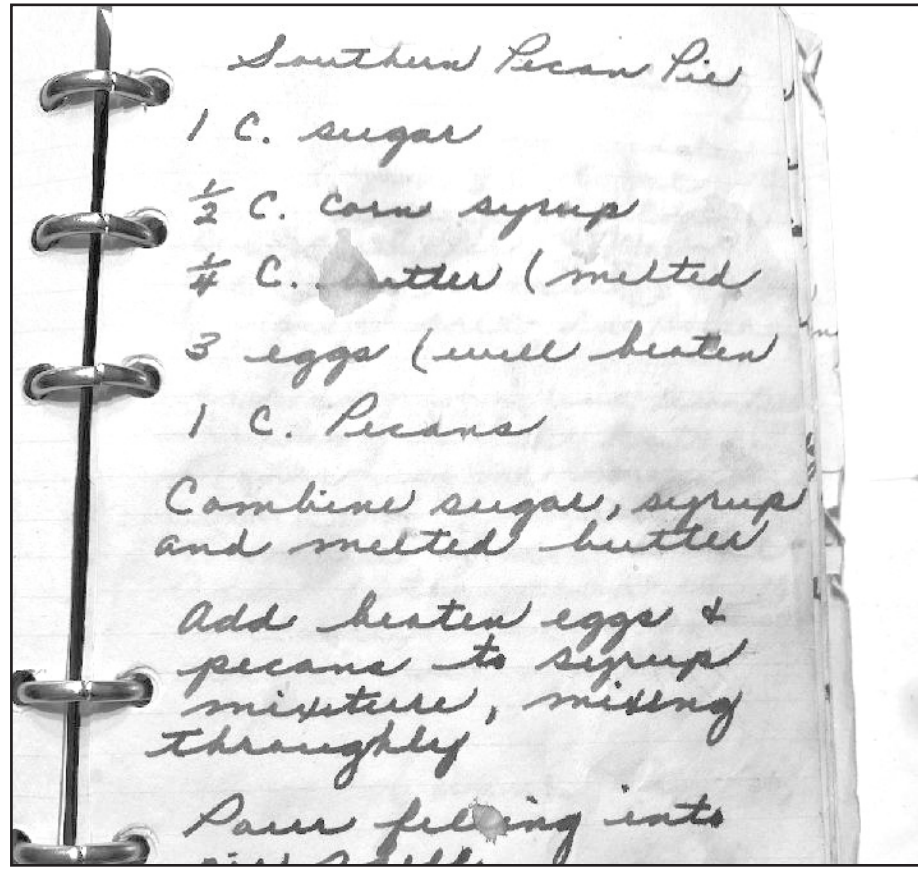 Southern Pecan Pie
1 C. sugar
1/2 C. corn syrup
1/4 C. butter (melted
3 eggs (well beaten
1 C. Pecans
Combine sugar, syrup
and melted butter
Add beaten eggs &
pecans to syrup
mixture, mixing
throughly
Pour filling into